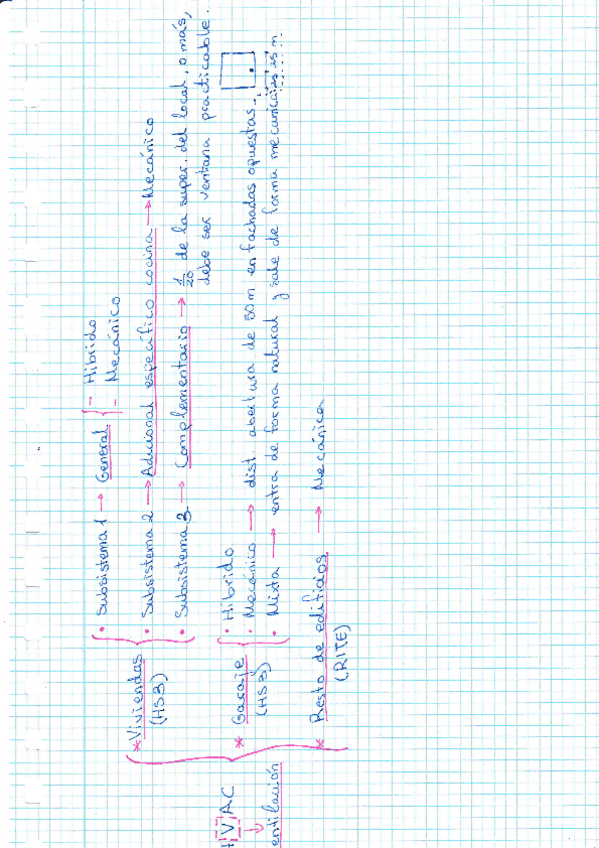 HVAC
Ventilación
* Viviendas
(HS3)
• Subsistema 1 → General
- Híbrido
- Mecánico
• Subsistema 2 → Adicional específico cocina → Mecánico
• Subsistema 3 → Complementario → 1/20 de la super. del local, o más,
debe ser ventana practicable.
* Garaje
(HS3)
• Híbrido
• Mecánico → dist. abertura de 50 m en fachadas opuestas.
• Mixta → entra de forma natural y sale de forma mecánica
* Resto de edificios → Mecánica
(RITE)